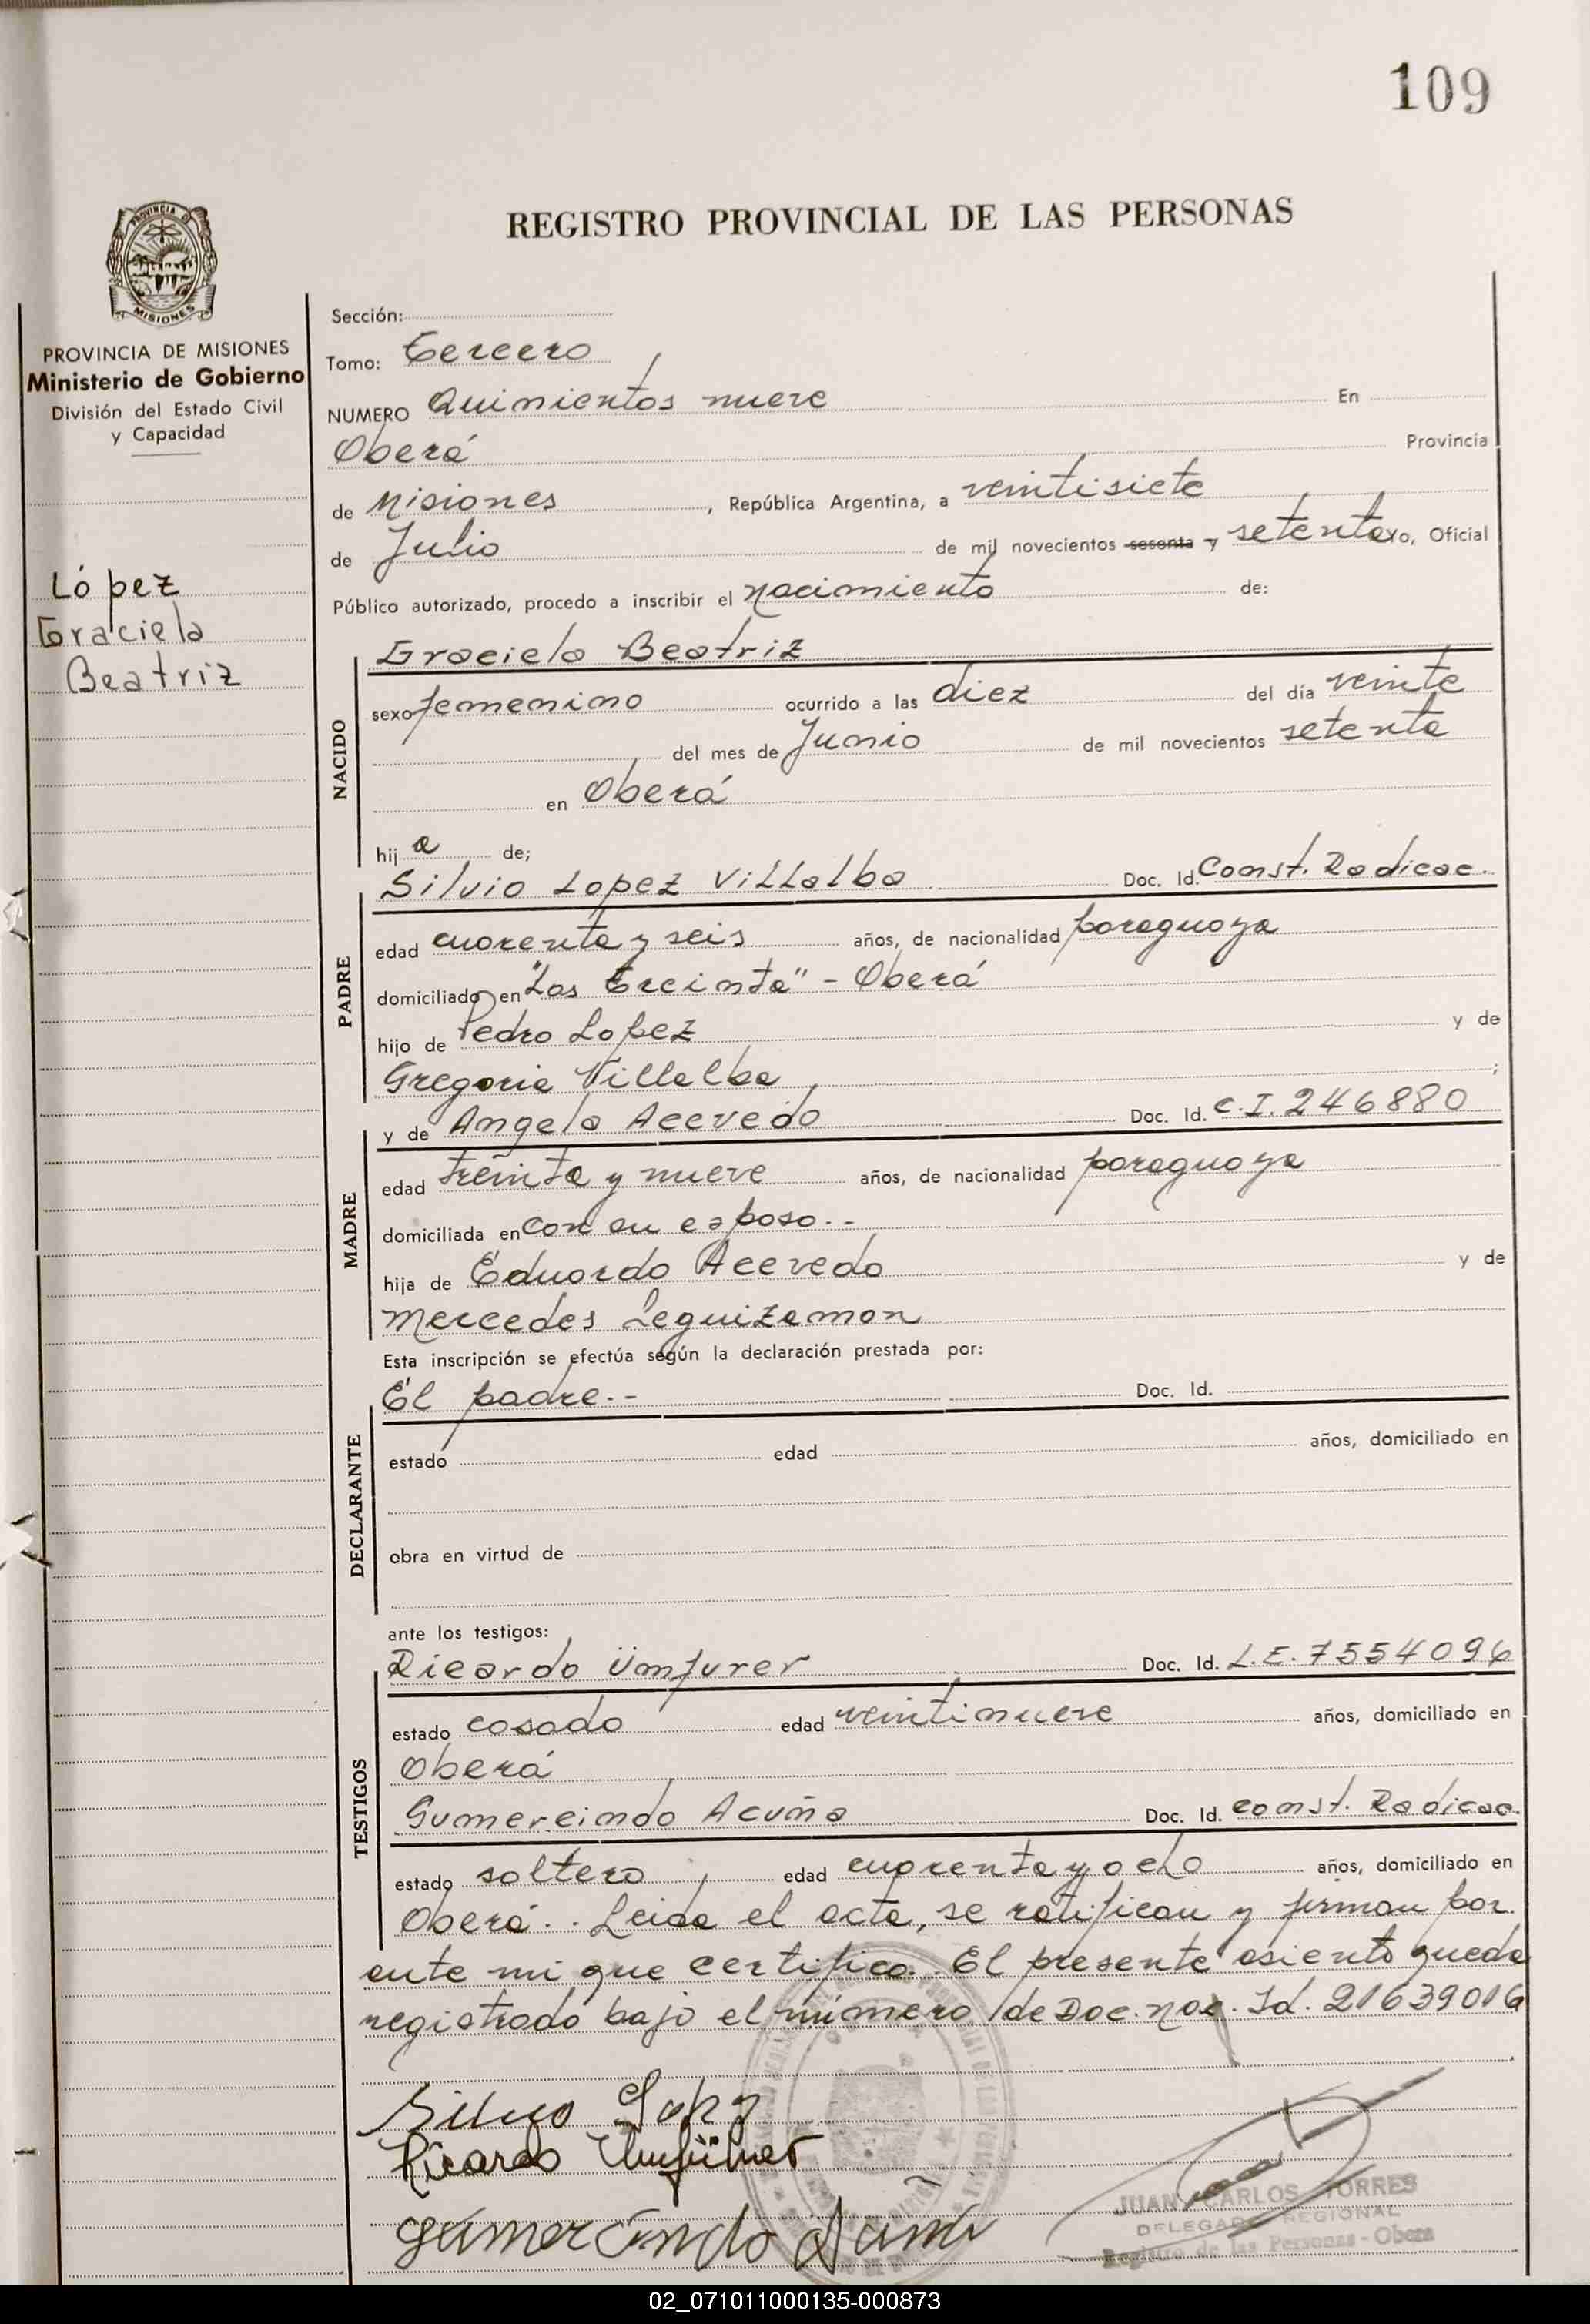 109
REGISTRO PROVINCIAL DE LAS PERSONAS
PROVINCIA DE MISIONES
Ministerio de Gobierno
División del Estado Civil
y Capacidad
López
Graciela
Beatriz
Sección:
Tomo: Tercero
NUMERO Quinientos nueve En
Oberá Provincia
de Misiones, República Argentina, a veintisiete
de Julio de mil novecientos sesenta y setenta yo, Oficial
Público autorizado, procedo a inscribir el nacimiento de:
NACIDO
Graciela Beatriz
sexo femenino ocurrido a las diez del día veinte
del mes de Junio de mil novecientos setenta
en Oberá
hij a de;
PADRE
Silvio Lopez Villalba Doc. Id. Const. Radicac.
edad cuarenta y seis años, de nacionalidad paraguaya
domiciliado en "Las Treinta" - Oberá
hijo de Pedro Lopez y de
Gregoria Villalba ;
MADRE
y de Angela Acevedo Doc. Id. C.I. 246880
edad treinta y nueve años, de nacionalidad paraguaya
domiciliada en con su esposo.-
hija de Eduardo Acevedo y de
Mercedes Leguizamon
Esta inscripción se efectúa según la declaración prestada por:
DECLARANTE
El padre.- Doc. Id.
estado edad años, domiciliado en
obra en virtud de
ante los testigos:
TESTIGOS
Ricardo Umfurer Doc. Id. L.E. 7554096
estado casado edad veintinueve años, domiciliado en
Oberá
Gumercindo Acuña Doc. Id. const. Radicac.
estado soltero edad cuarenta y ocho años, domiciliado en
Oberá.. Leida el acta, se ratifican y firman por
ante mi que certifico. El presente asiento queda
registrado bajo el número de Doc. nac. Id. 21639016
Silvio Lopez
Ricardo
Gumercindo Acuña
JUAN CARLOS TORRES
DELEGADO REGIONAL
Registro de las Personas - Obera
02_071011000135-000873